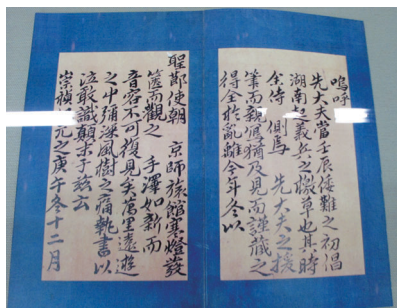 嗚呼
先大夫當壬辰倭難之初倡
湖南起義兵之檄草也其時
余侍側焉 先大夫之援
筆而親寫猶及見而謹藏之
得全於亂離今年冬以
聖節使朝 京師旅館寒燈發
篋而觀之 手澤如新而
音容不可復見矣萬里遠遊
之中彌深風樹之痛執書以
泣敢識顛末于玆云
崇禎元之庚午冬十二月